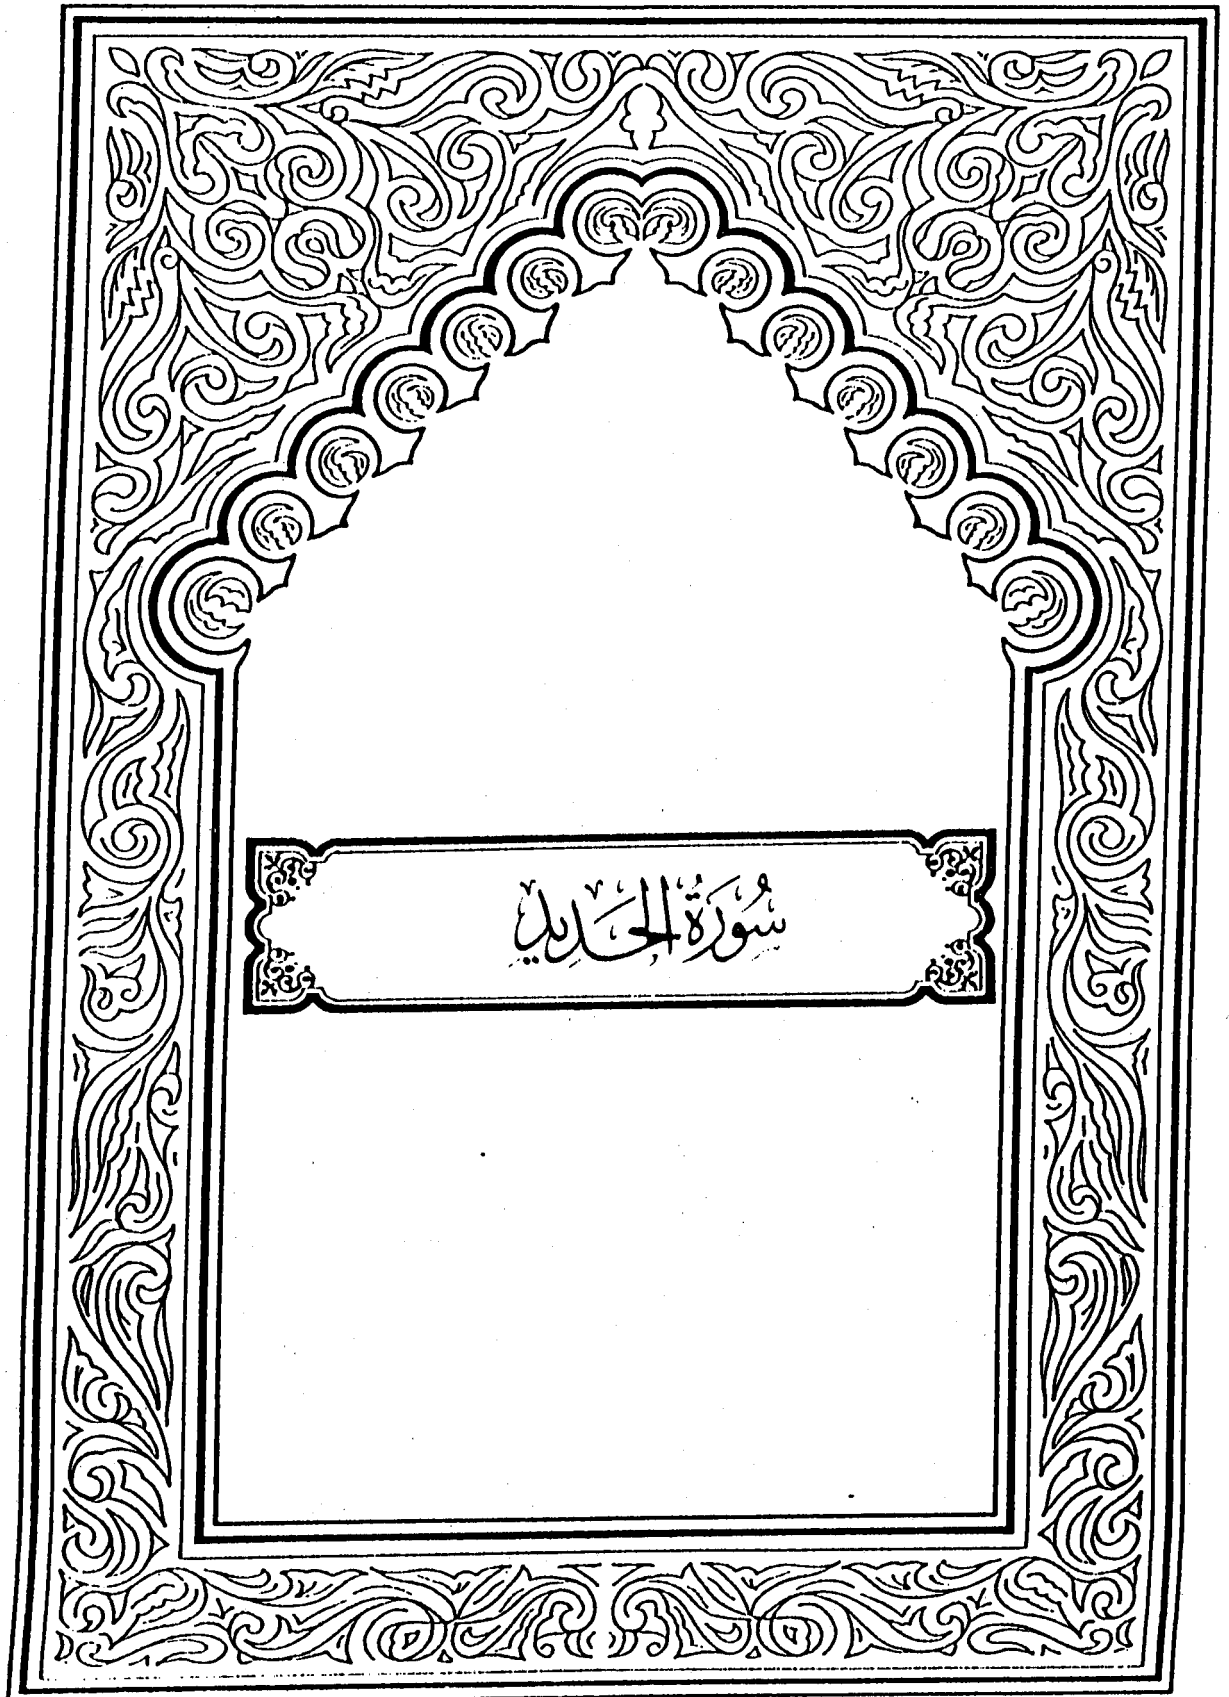 سُورَةُ الحَدِيدِ